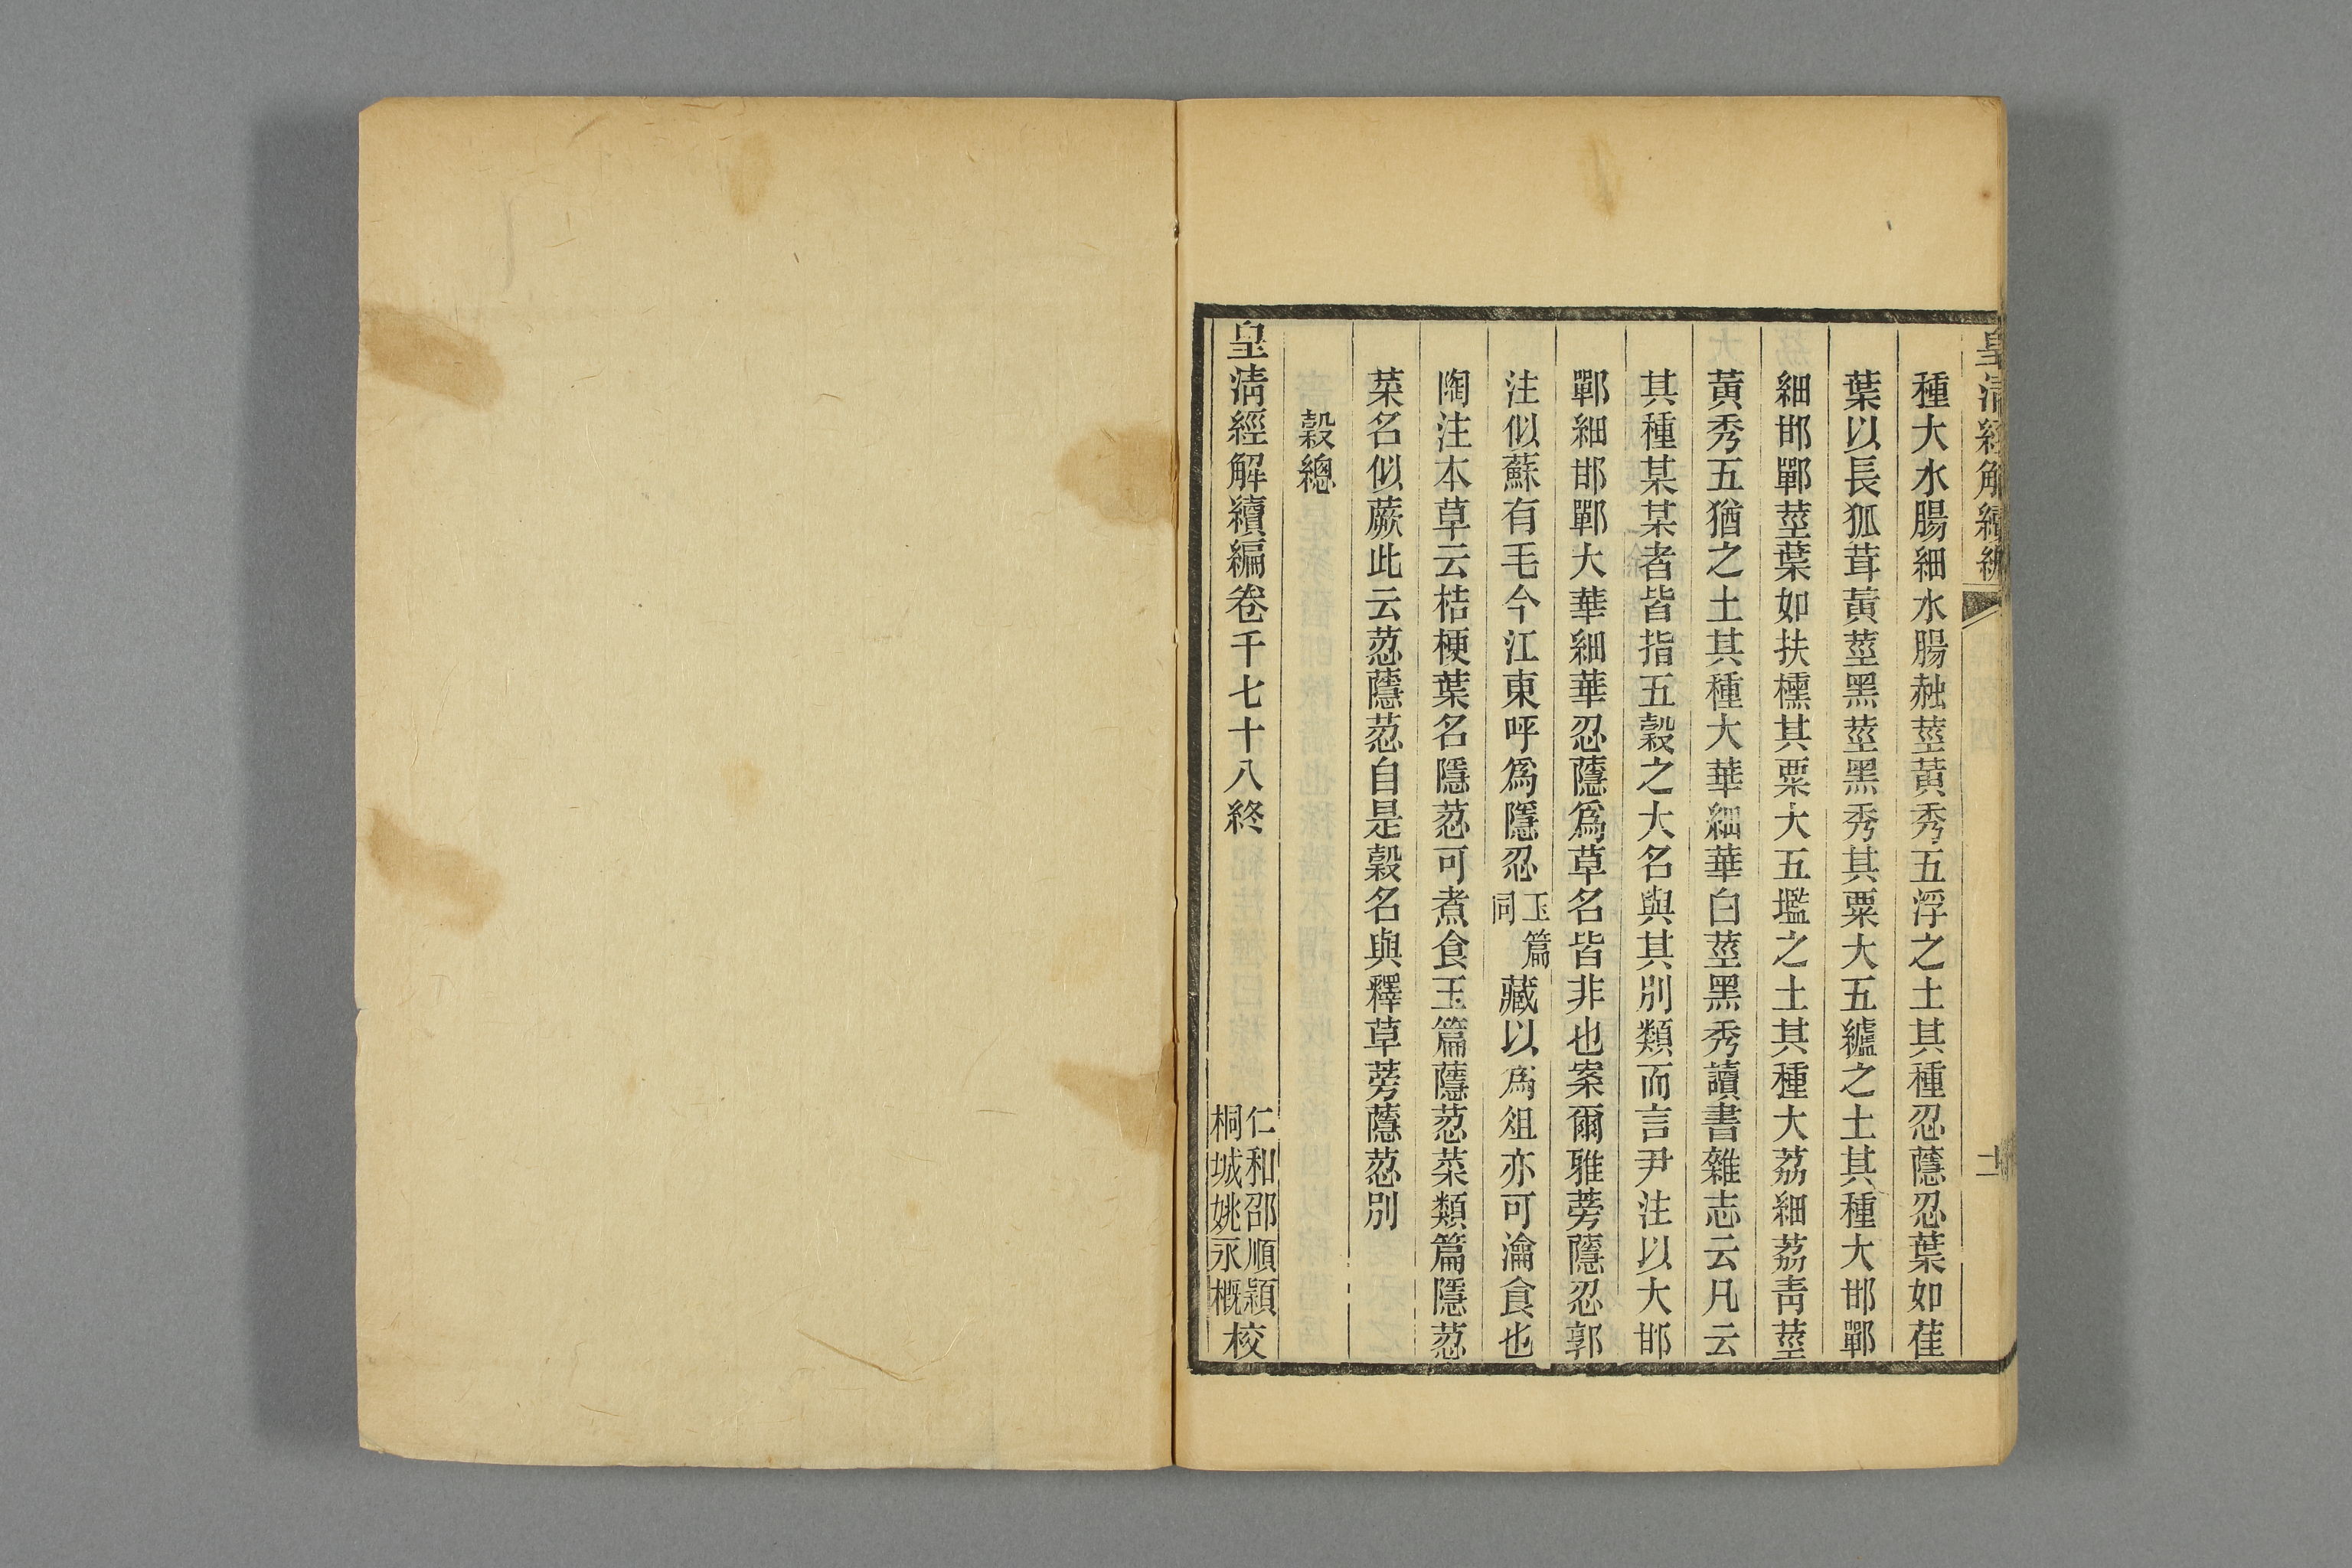 皇清經解續編
種大水腸細水腸赨莖黃秀五浮之土其種忍蘟忍葉如萑
葉以長狐茸黃莖黑莖黑秀其粟大五纑之土其種大邯鄲
細邯鄲莖葉如扶櫄其粟大五壏之土其種大荔細荔靑莖
黃秀五猶之土其種大華細華白莖黑秀讀書雜志云凡云
其種某某者皆指五穀之大名與其別類而言尹注以大邯
鄲細邯鄲大華細華忍蘟爲草名皆非也案爾雅蒡蘟忍郭
注似蘇有毛今江東呼爲隱忍玉篇同藏以爲俎亦可瀹食也
陶注本草云桔梗葉名隱荵可煮食玉篇蘟荵菜類篇隱荵
菜名似蕨此云荵蘟荵自是穀名與釋草蒡蘟荵別
穀總
皇淸經解續編卷千七十八終
仁和邵順穎
桐城姚永概
校